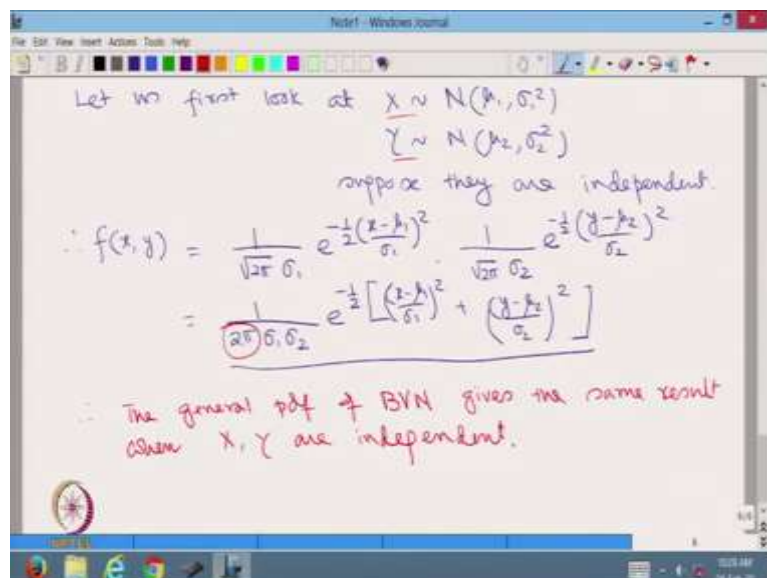 Note1 - Windows Journal
File Edit View Insert Actions Tools Help
Let us first look at X ~ N(μ₁, σ₁²)
Y ~ N(μ₂, σ₂²)
suppose they are independent.
∴ f(x, y) = 1/(√2π σ₁) e^{-1/2((x-μ₁)/σ₁)²} · 1/(√2π σ₂) e^{-1/2((y-μ₂)/σ₂)²}
= 1/(2π σ₁ σ₂) e^{-1/2[((x-μ₁)/σ₁)² + ((y-μ₂)/σ₂)²]}
∴ The general pdf of BVN gives the same result
when X, Y are independent.